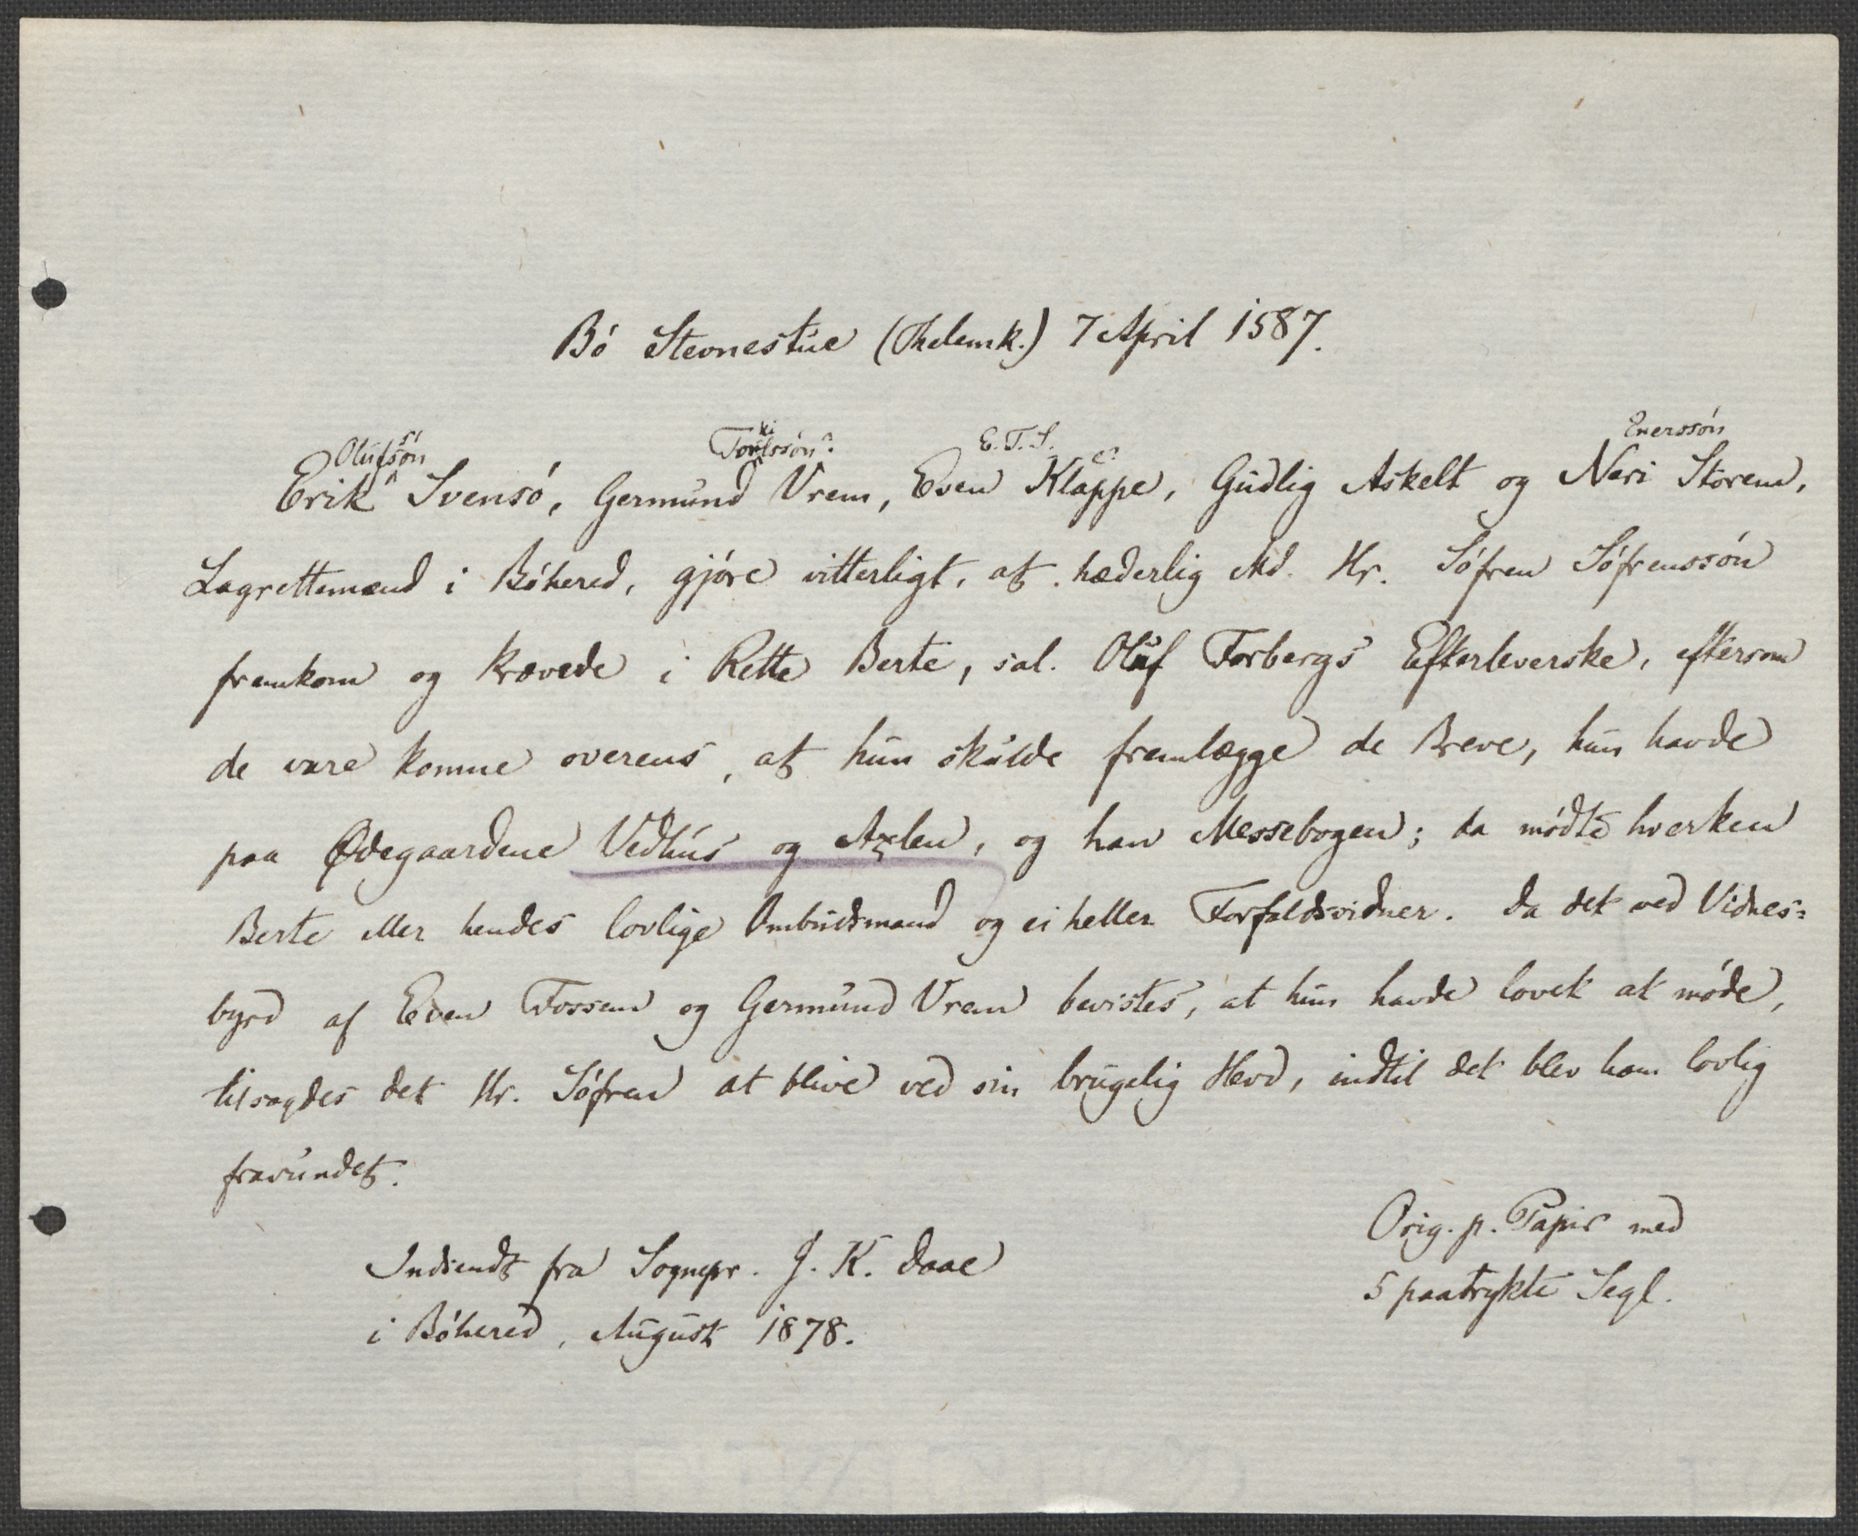 Bó Stevnestue (Thelemk.) 7 April 1587.
Olufssón Torkilssón? E. T. S. e? Enerssón
Erik Svensó, Germund Vrem, Even Klappe, Gudlig Askelt og Neri Storem,
Lagrettemænd i Bóhered, gjóre vitterligt, at hæderlig Md. Hr. Sófren Sófrenssón
fremkom og krævede i Rette Berte, sal. Oluf Forbergs Efterleverske, eftersom
de vare komne overens, at hun skulde fremlægge de Breve, hun havde
paa Ødegaardene Vedhus og Axlen, og han Messebogen; da módte hverken
Berte eller hendes lovlige Ombudsmand og ei heller Forfaldsvidner. Da det ved Vidnes=
byrd af Even Fossem og Germund Vrem bevistes, at hun havde lovet at móde,
tilsagdes det Hr. Sófren at blive ved sin brugelig Hevd, indtil det blev ham lovlig
fravundet.
Orig. p. Papir med
5 paatrykte Segl.
Indsendt fra Sognepr. J. K. Daae
i Bóhered, August 1878.